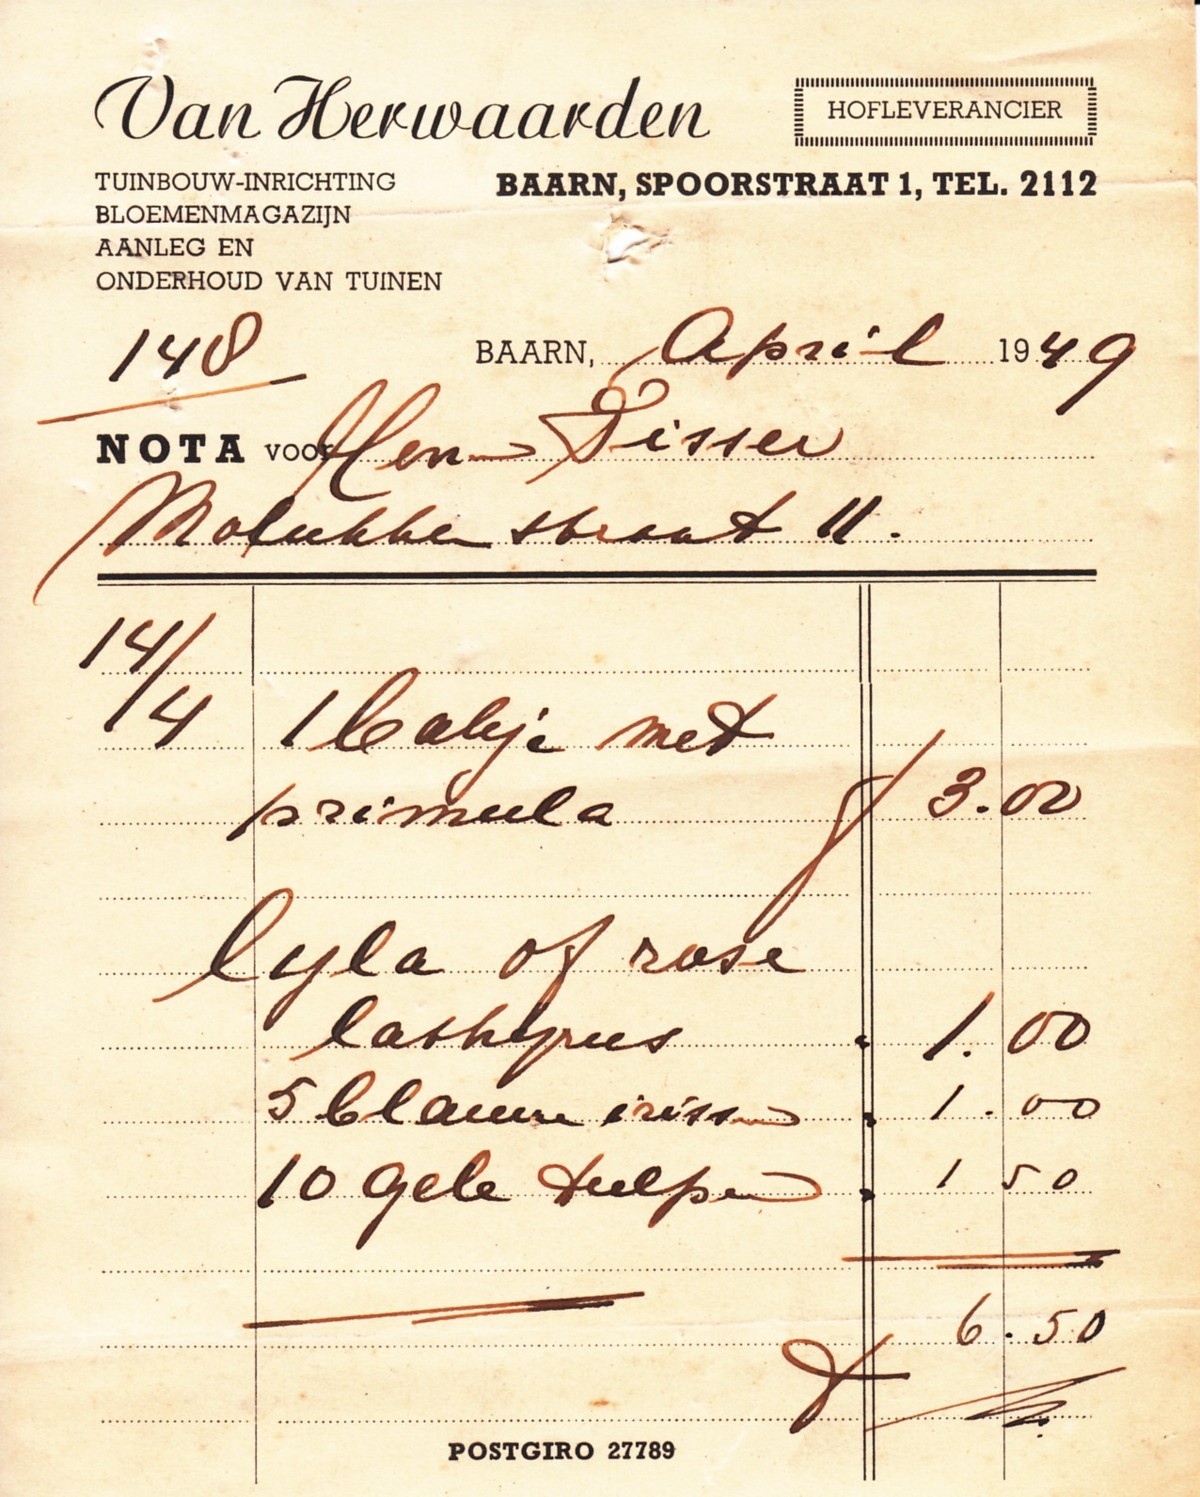 Van Herwaarden
HOFLEVERANCIER
TUINBOUW-INRICHTING
BLOEMENMAGAZIJN
AANLEG EN
ONDERHOUD VAN TUINEN
BAARN, SPOORSTRAAT 1, TEL. 2112
148
BAARN, April 1949
NOTA voor Hen Visser
Molukken straat 11.
14/4 1 bakje met
primula f 3.00
lyla of rose
lathyrus " 1.00
5 blauwe irissen " 1.00
10 gele tulpen " 1 50
f 6.50
POSTGIRO 27789